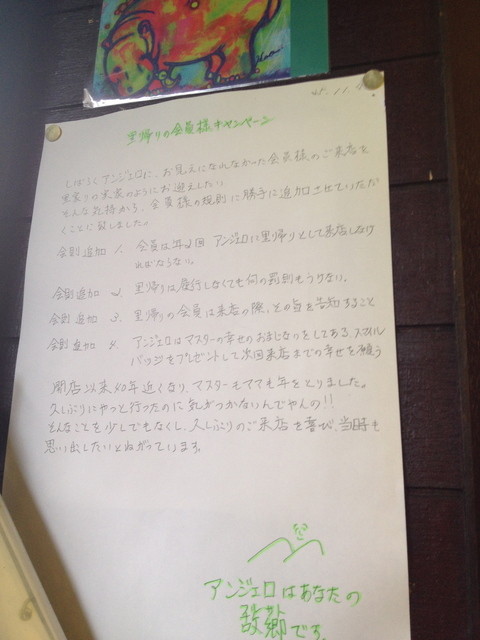 里帰りの会員様キャンペーン
しばらくアンジェロに、お見えになれなかった会員様のご来店を
実家のようにお迎えしたい。
そんな気持から、会員様の規則に勝手に追加させていただ
くことに致しました。
会則追加 1. 会員は年に2回 アンジェロに里帰りとして来店しなけ
ればならない。
会則追加 2. 里帰りは履行しなくても何の罰則もうけない。
会則追加 3. 里帰りの会員は来店の際、その旨を告知すること
会則追加 4. アンジェロはマスターの幸せのおまじないをしてある、スマイル
バッジをプレゼントして次回来店までの幸せを願う
開店以来40年近くなり、マスターもママも年をとりました。
久しぶりにやっと行ったのに気がつかないんでやんの!!
そんなことを少しでもなくし、久しぶりのご来店を喜び、当時も
思い出したいとねがっています。
アンジェロはあなたの
故郷です。